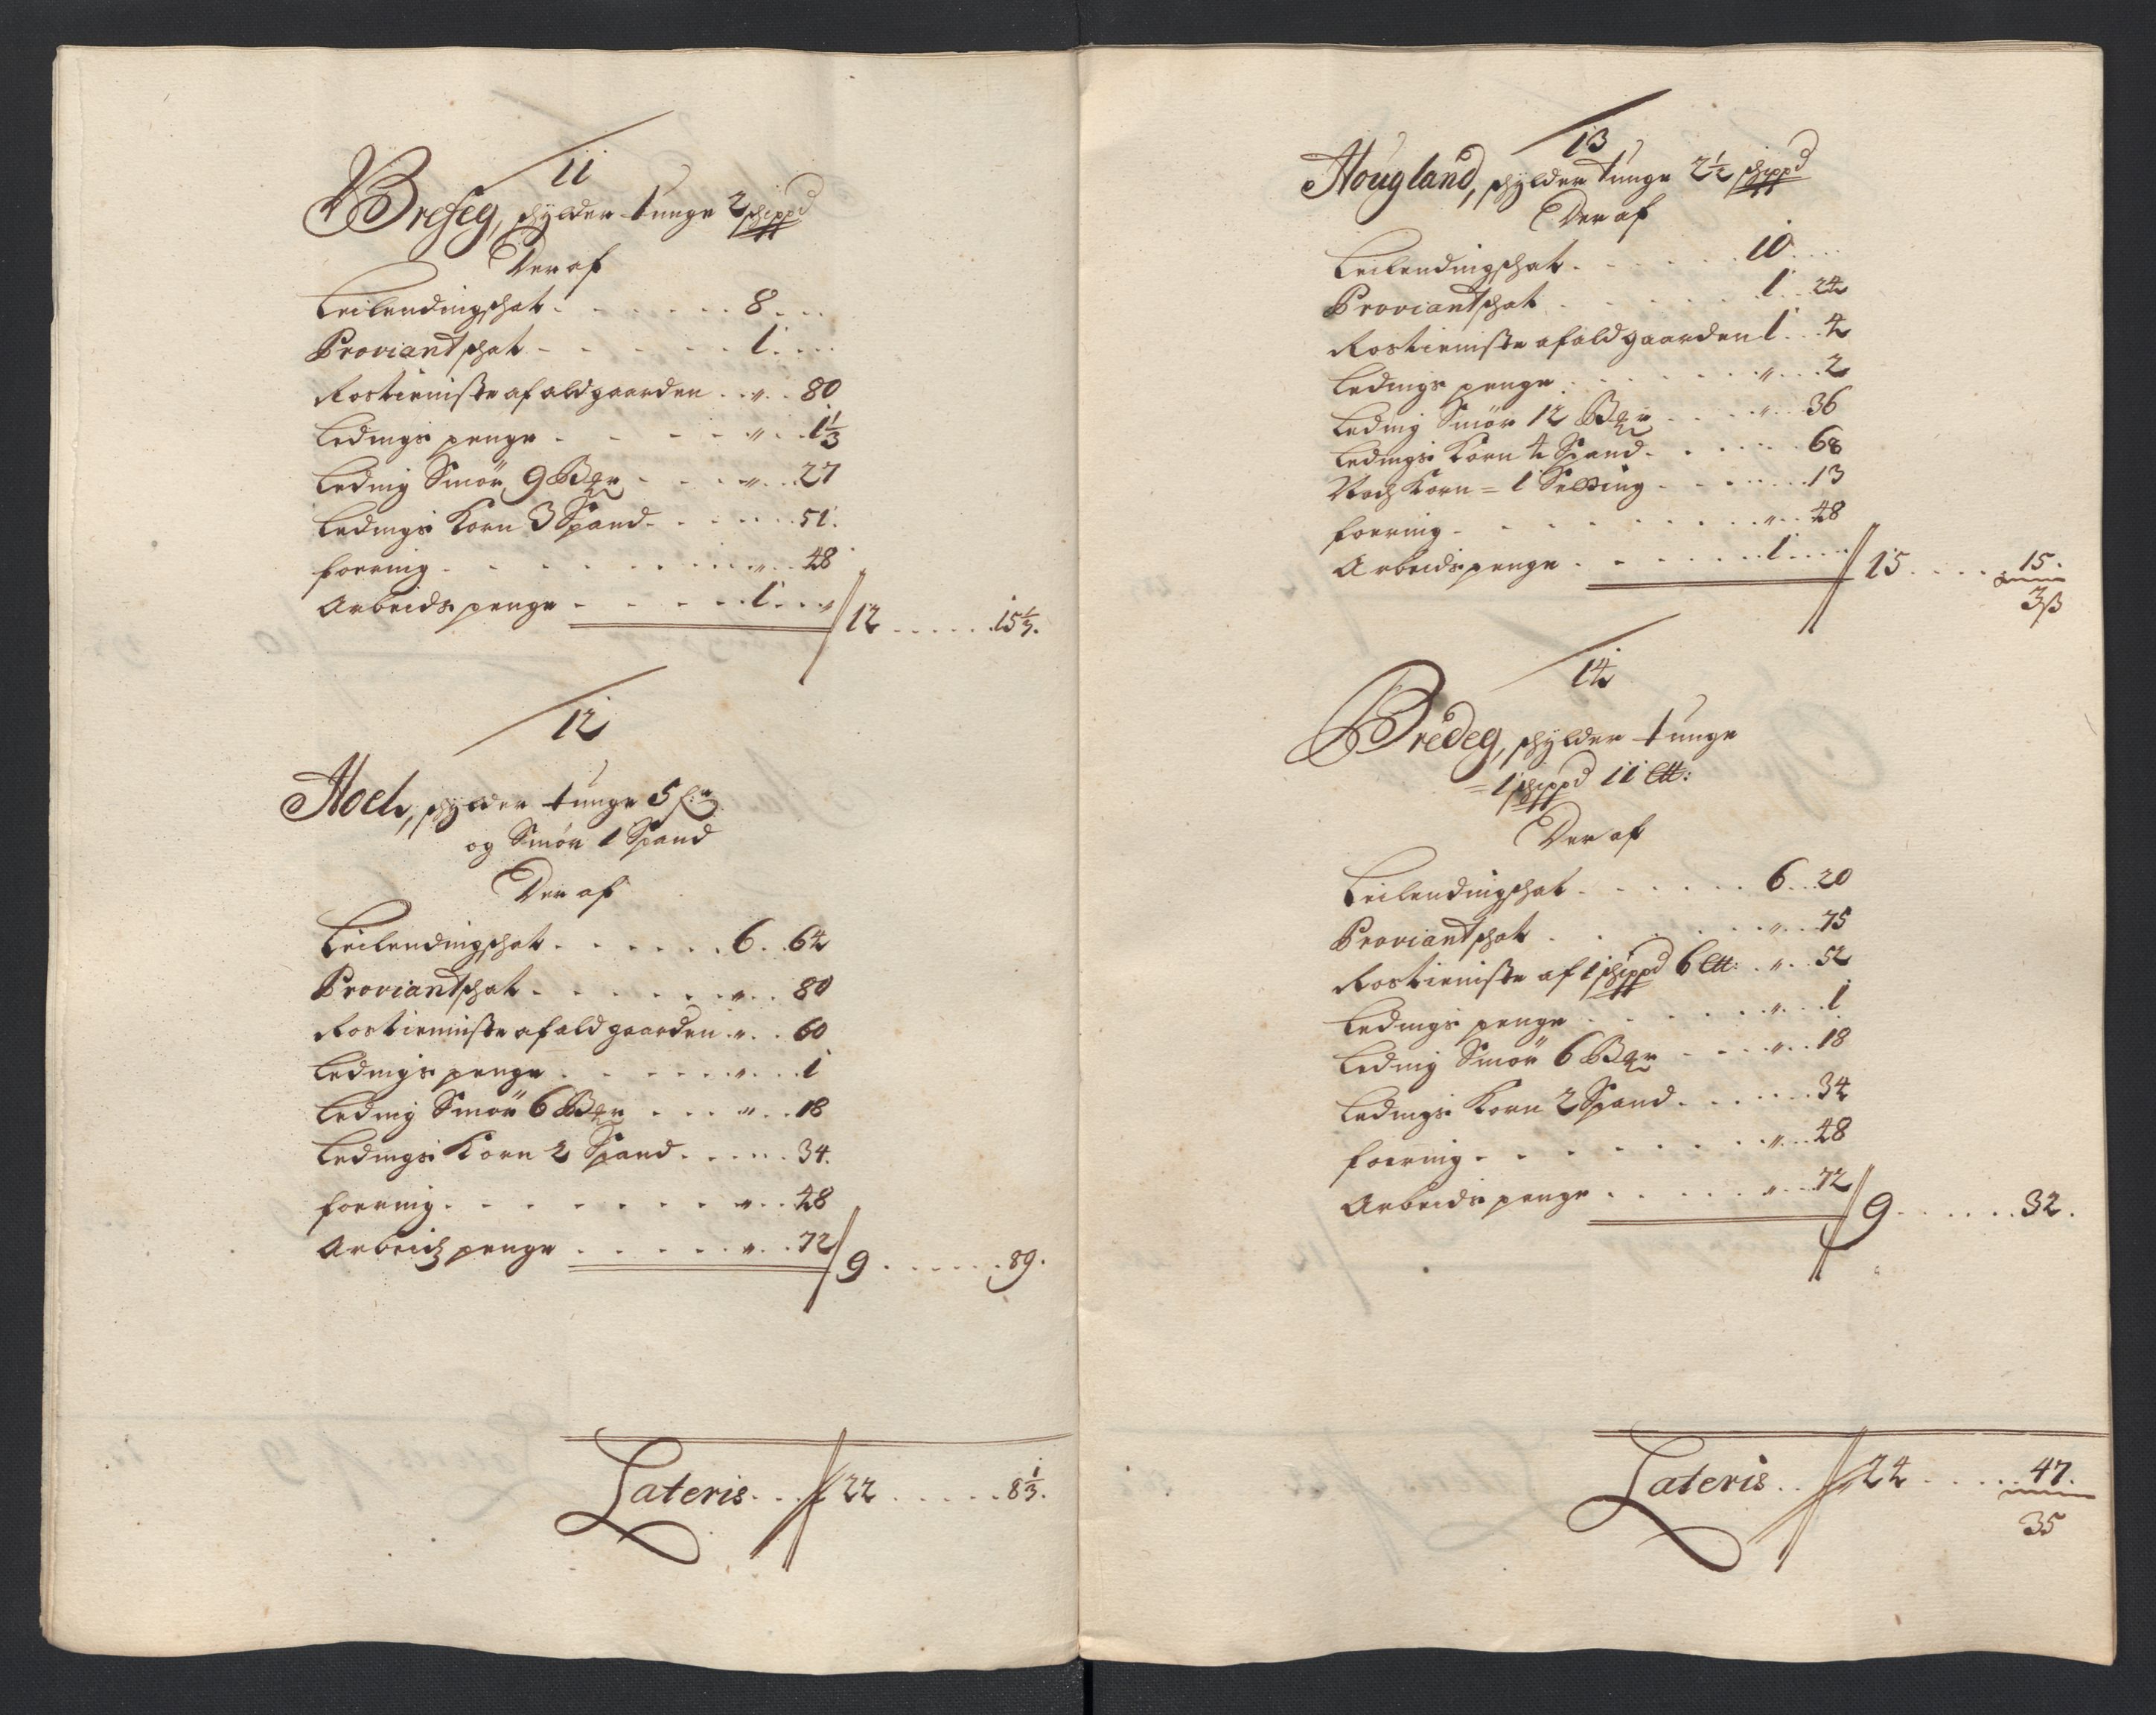 11
Breseg, schylder tunge 2 schippd
Der af
Leilendingschat . . . . . . 8 . . .
Proviantschat - - - - - 1 . . .
Rostieniste af ald gaarden . . „ . . 80
Ledings penge . - - - „ . . 1⅓
Leding Smör, 9 Bgr - - - „ . . 27
Ledings Korn 3 Spand . . . . . 51.
foering . . . . . . . . „ . . 48
Arbeids penge . . . . . 1 . . „ 12 . . . . . 15⅓.
12
Hoel, schylder tunge 5
og Smör 1 Spand
Der af
Leilendingschat . . . . . . 6 . . 64
Proviantschat . . . . . . „ . . 80
Rostienniste af ald gaarden . „ . . 60
Ledings penge . . . . . . „ . . . 1
Leding Smör 6 Bgr . . . „ . . 18
Ledings Korn 2 Spand . . . . . 34.
foering . . . . . . . „ . . 48
Arbeidz penge . . . . . „ . . 72 9 . . . . . . 89.
Lateris . . . 22 . . . . . 8⅓.
13
Hougland, schylder tunge 2½ schippd
Der af
Leilendingschat . . . . . . 10 . . . .
Proviantschat . . . . . . 1 . . 24
Rostieniste af ald gaarden 1 . . 4
Ledings penge . . . . . . „ . . . 2
Leding Smör 12 Bgr . . . . „ . . 36
Ledings Korn 4 Spand . . . . . . 68
Noch Korn = 1 Setting . . . . . . 13
foering . . . . . . . . „ . . 48
Arbeids penge . . . . . . 1 . . . . 15 . . . . 15.
3ß
14
Bredeg, schylder tunge
= 1 schippd 11 Ltt:
Der af
Leilendingschat . . . . . . 6 . . 20
Proviantschat . . . . . . „ . . 75
Rostieniste af 1 schippd 6 Ltt: . „ . . 52
Ledings penge . . . . . . „ . . . 1
Leding Smör 6 Bgr . . . „ . . 18
Ledings Korn 2 Spand . . . . . . 34
foering . . . . . . . . „ . . 48
Arbeids penge . . . . . „ . . 72 9 . . . . . . 32.
Lateris . . 24 . . . . . 47.
35